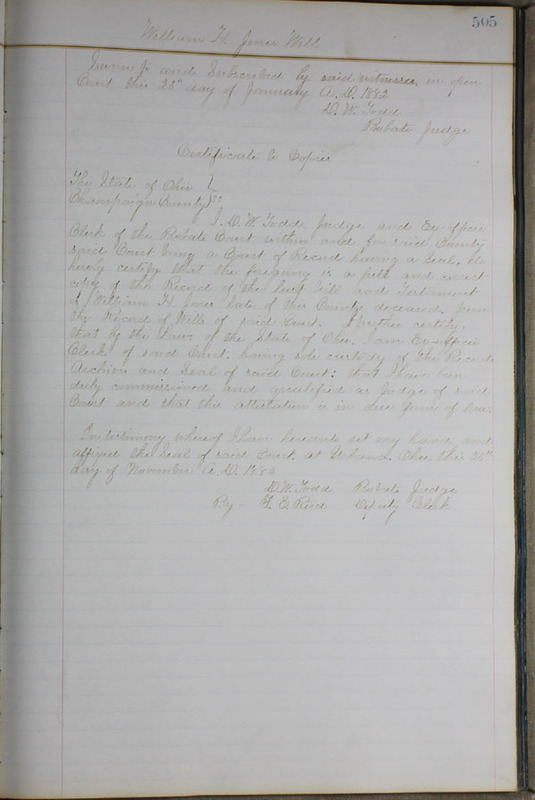 505
William H. Jones Will
Sworn to and Subscribed by said witnesses in open
Court this 28" day of January A.D. 1882
D. W. Todd
Probate Judge
Certificate to Copies
The State of Ohio
Champaign County } ss
I. D. W. Todd Judge and Ex-officio
Clerk of the Probate Court within and for said County
said Court being a Court of Record having a Seal, do
hereby certify that the foregoing is a full and correct
copy of the Record of the Last Will and Testament
of William H. Jones late of this County deceased, from
the Record of Wills of said Court. I further certify.
that by the Laws of the State of Ohio. I am Ex-officio
Clerk of said Court. having sole custody of the Records
Archives and Seal of said Court: that I have been
duly commissioned and qualified as Judge of said
Court and that this attestation is in due form of law.
In testimony whereof I have hereunto set my hand and
affixed the Seal of said Court at Urbana. Ohio this 26"
day of November A. D. 1882
D. W. Todd Probate Judge
By - Deputy Clerk